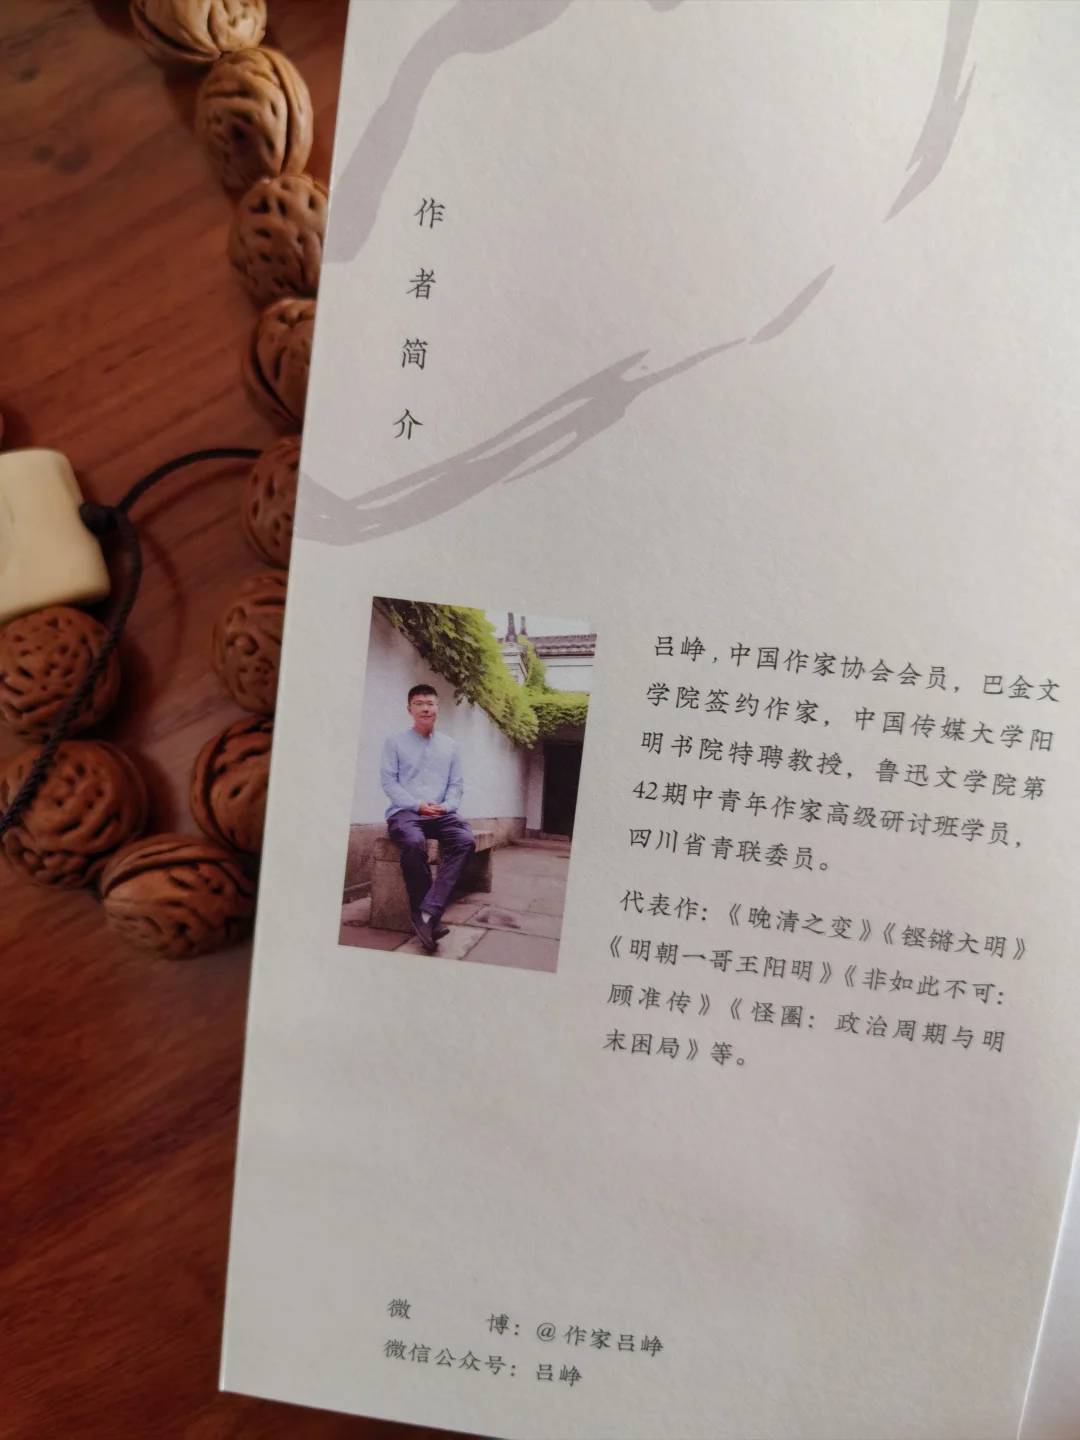 作者简介
吕峥，中国作家协会会员，巴金文
学院签约作家，中国传媒大学阳
明书院特聘教授，鲁迅文学院第
42期中青年作家高级研讨班学员，
四川省青联委员。
代表作：《晚清之变》《铿锵大明》
《明朝一哥王阳明》《非如此不可：
顾准传》《怪圈：政治周期与明
末困局》等。
微 博：@作家吕峥
微信公众号：吕峥